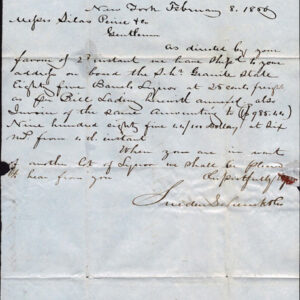 New York February 8. 1856
Messrs Silas Peirce & Co
Gentlemen
as directed by your
favour of 2d instant we have Ship'd to your
address on board the Sch. Granite State
Eighty five Barrels Liquor at 25 cents freight
as per Bill Lading herewith annexed also
Invoice of the same Amounting to ($985.44)
Nine hundred Eighty five 44/100 dollars at Six
from 4th instant
When you are in want
of another lot of Liquor we shall be pleased
to hear from you
Respectfully Yrs